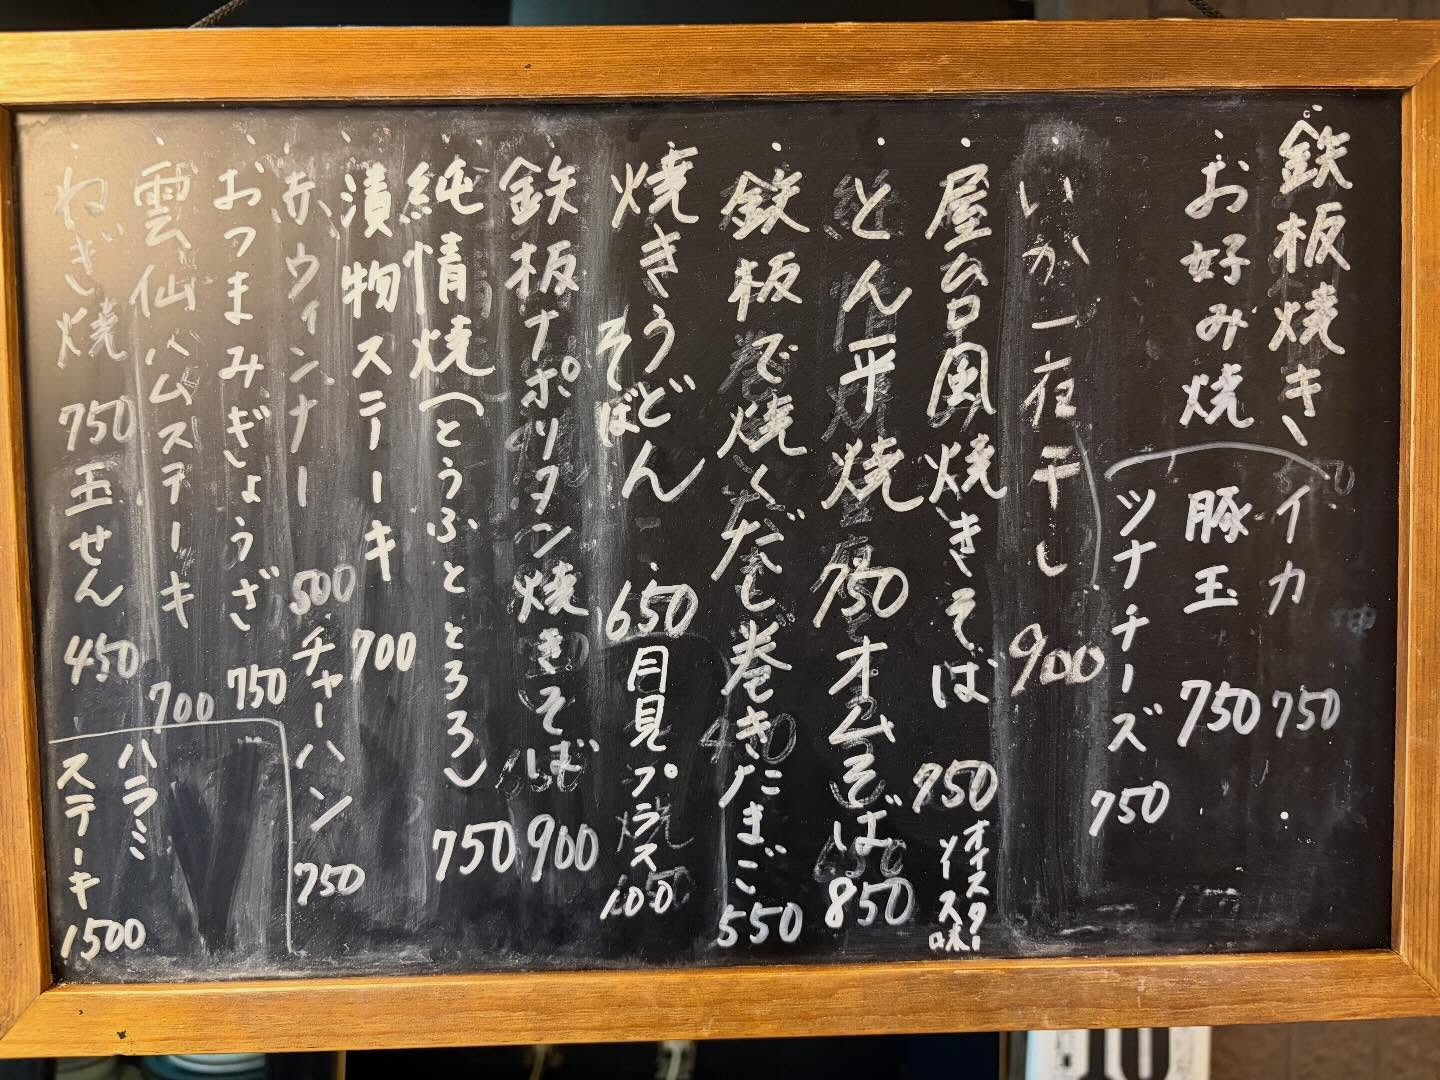 鉄板焼き
お好み焼 イカ 750
豚玉 750
ツナチーズ 750
いか一夜干し 900
屋台風焼きそば 750 オイスターソース味
とん平焼 750
オムそば 850
鉄板で焼くだし巻きたまご 550
焼きうどん
そば 650
月見プラス100
鉄板ナポリタン焼きそば 900
純情焼(とうふととろろ) 750
漬物ステーキ 700
赤ウィンナー 500
チャーハン 750
おつまみぎょうざ 750
雲仙ハムステーキ 700
ねぎ焼 750
玉せん 450
ハラミ
ステーキ 1500